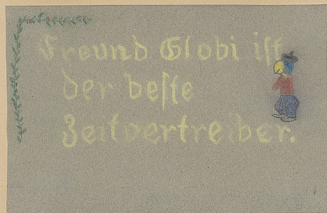 Freund Globi ist
der beste
Zeitvertreiber.